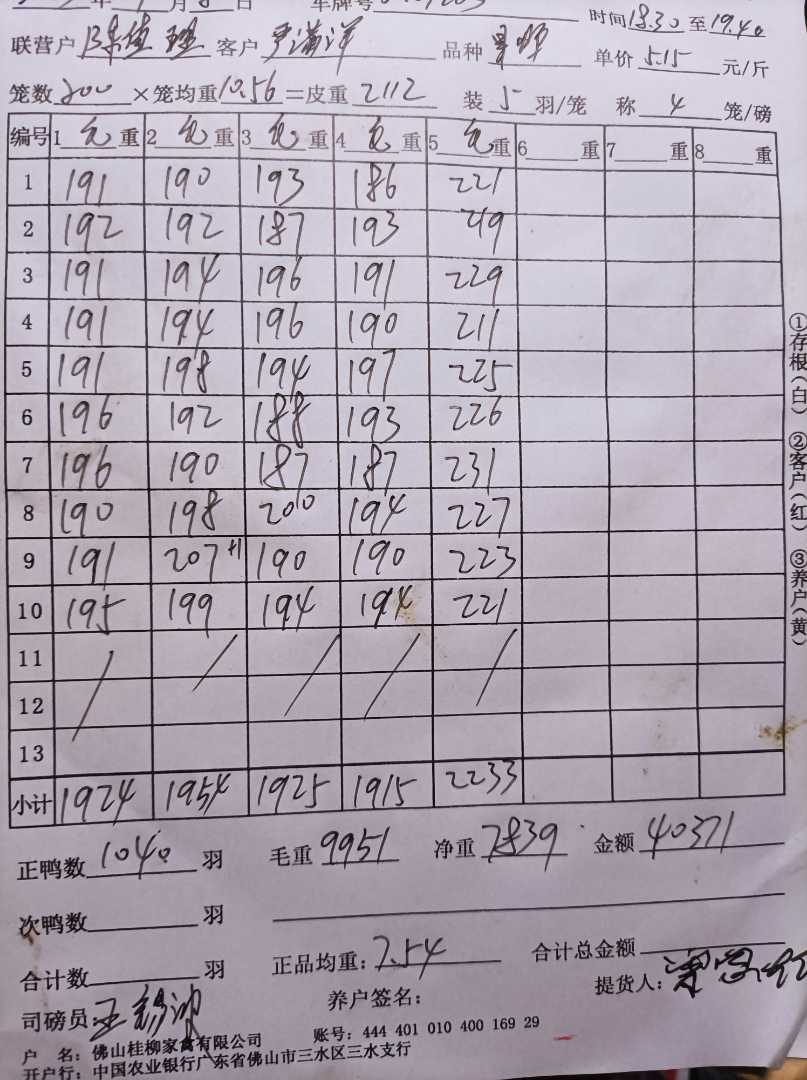 年 月 日 车牌号
时间18.30至19.40
联营户 客户 品种 单价5.15元/斤
笼数200×笼均重10.56=皮重2112 装5羽/笼 称4笼/磅
编号 1 毛 重 2 毛 重 3 毛 重 4 毛 重 5 毛 重 6 重 7 重 8 重
1 191 190 193 186 221
2 192 192 187 193
3 191 194 196 191 229
4 191 194 196 190 211
5 191 198 194 197 225
6 196 192 188 193 226
7 196 190 187 187 231
8 190 198 200 194 227
9 191 207+1 190 190 223
10 195 199 194 194 221
11 / / / / /
12
13
小计 1924 1954 1925 1915 2233
正鸭数1040羽 毛重9951 净重7839 金额40371
次鸭数 羽
合计数 羽 正品均重:7.54 合计总金额
司磅员: 养户签名: 提货人:
户 名:佛山桂柳家禽有限公司 账号:444 401 010 400 169 29
开户行:中国农业银行广东省佛山市三水区三水支行
①存根(白) ②客户(红) ③养户(黄)